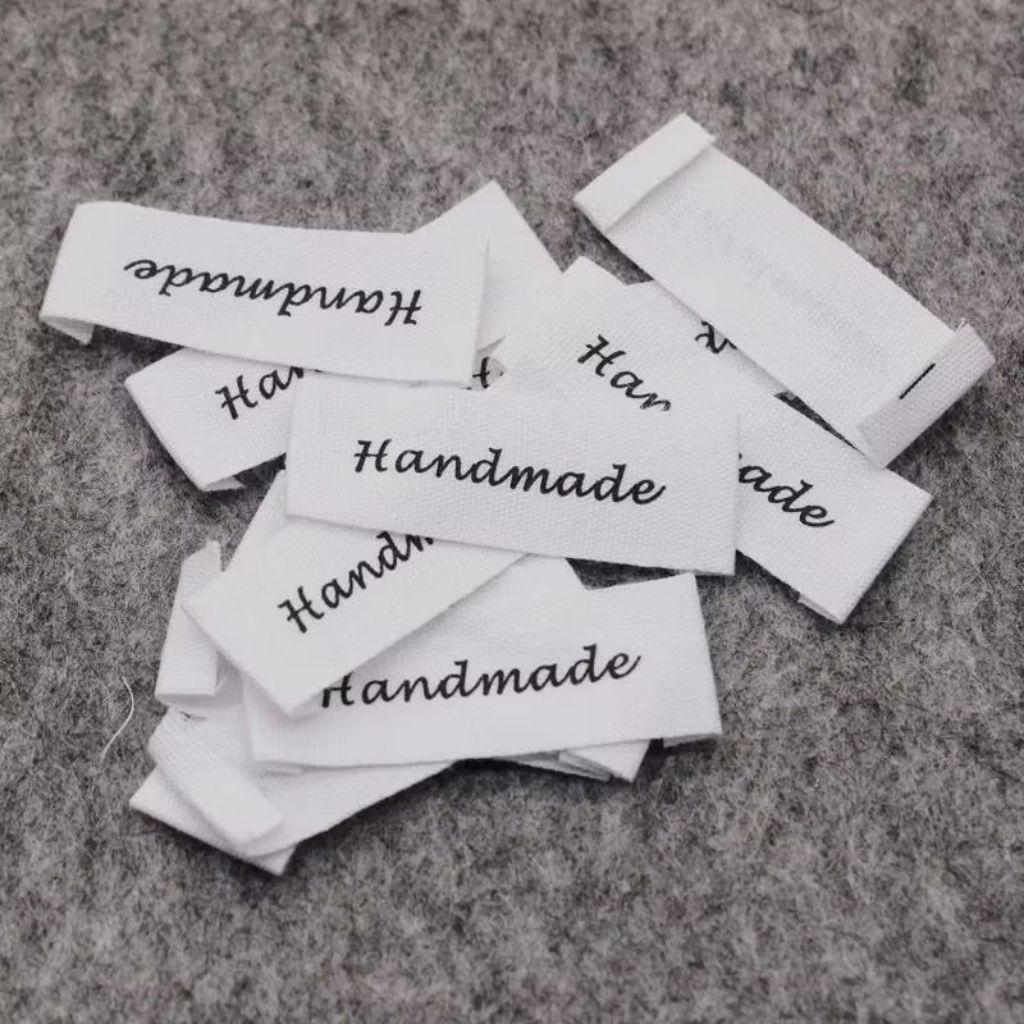 Handmade
Har
Han
H
Handmade
ade
Hand
Handmade